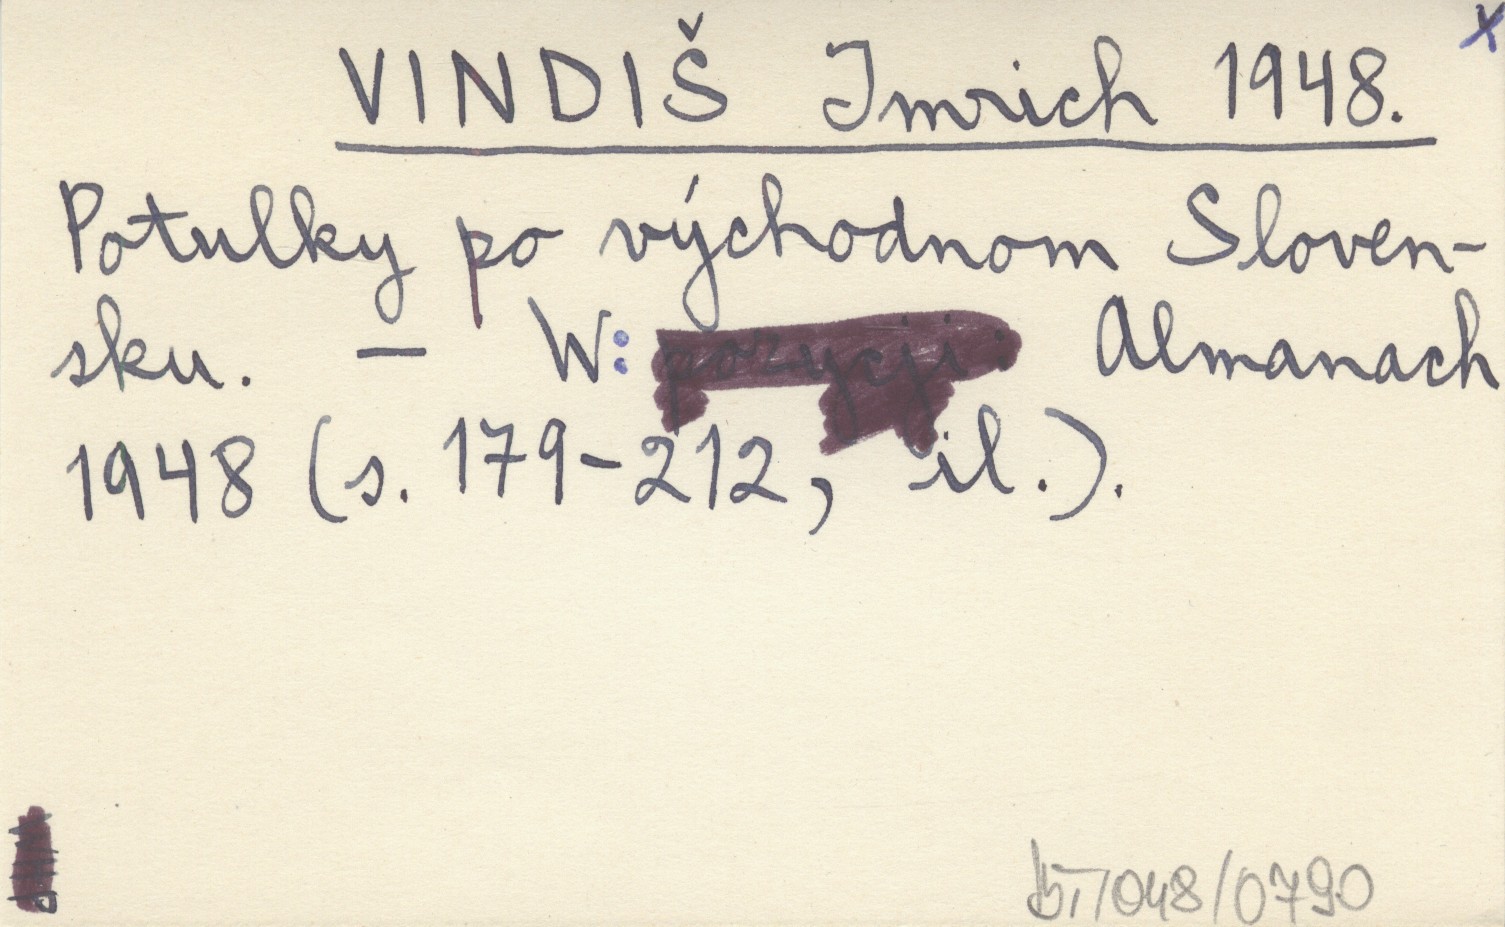 x
VINDIŠ Imrich 1948.
Potulky po východnom Sloven-
sku. — W: pozycji: Almanach
1948 (s. 179-212, il.).
/048/0790